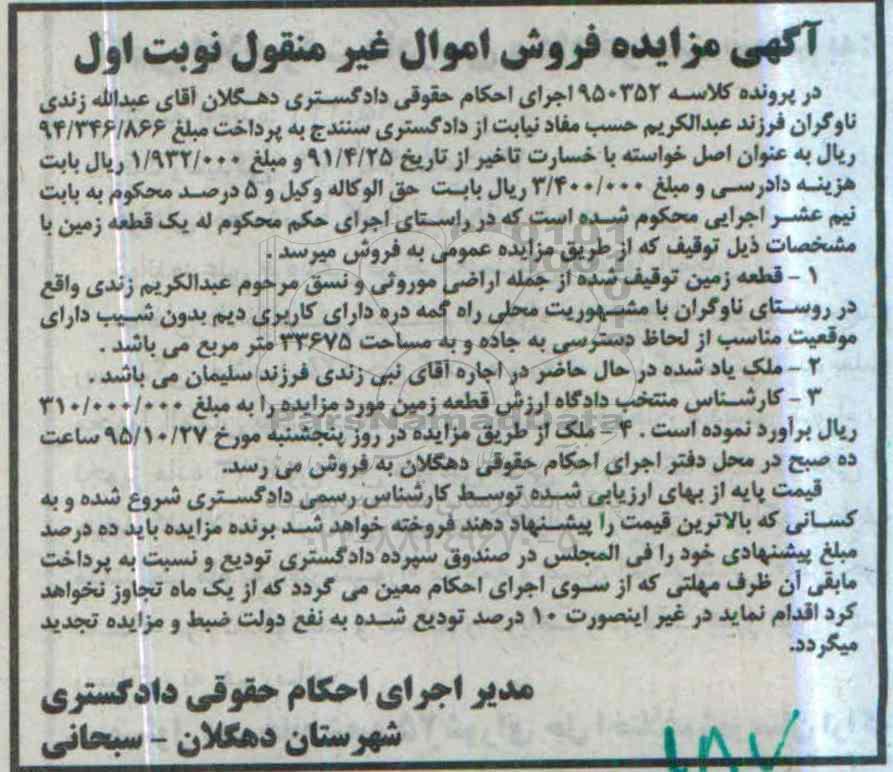 آگهی مزایده فروش اموال غیر منقول نوبت اول
در پرونده کلاسه ۹۵۰۳۵۲ اجرای احکام حقوقی دادگستری دهگلان آقای عبدالله زندی
ناوگران فرزند عبدالکریم حسب مفاد نیابت از دادگستری سنندج به پرداخت مبلغ ۹۴/۳۴۶/۸۶۶
ریال به عنوان اصل خواسته با خسارت تاخیر از تاریخ ۹۱/۴/۲۵ و مبلغ ۱/۹۳۲/۰۰۰ ریال بابت
هزینه دادرسی و مبلغ ۳/۴۰۰/۰۰۰ ریال بابت حق الوکاله وکیل و ۵ درصد محکوم به بابت
نیم عشر اجرایی محکوم شده است که در راستای اجرای حکم محکوم له یک قطعه زمین با
مشخصات ذیل توقیف که از طریق مزایده عمومی به فروش میرسد .
۱ - قطعه زمین توقیف شده از جمله اراضی موروثی و نسق مرحوم عبدالکریم زندی واقع
در روستای ناوگران با مشهوریت محلی راه گمه دره دارای کاربری دیم بدون شیب دارای
موقعیت مناسب از لحاظ دسترسی به جاده و به مساحت ۳۳۶۷۵ متر مربع می باشد .
۲ - ملک یاد شده در حال حاضر در اجاره آقای نبی زندی فرزند سلیمان می باشد .
۳ - کارشناس منتخب دادگاه ارزش قطعه زمین مورد مزایده را به مبلغ ۳۱۰/۰۰۰/۰۰۰
ریال برآورد نموده است . ۴ - ملک از طریق مزایده در روز پنجشنبه مورخ ۹۵/۱۰/۲۷ ساعت
ده صبح در محل دفتر اجرای احکام حقوقی دهگلان به فروش می رسد.
قیمت پایه از بهای ارزیابی شده توسط کارشناس رسمی دادگستری شروع شده و به
کسانی که بالاترین قیمت را پیشنهاد دهند فروخته خواهد شد برنده مزایده باید ده درصد
مبلغ پیشنهادی خود را فی المجلس در صندوق سپرده دادگستری تودیع و نسبت به پرداخت
مابقی آن ظرف مهلتی که از سوی اجرای احکام معین می گردد که از یک ماه تجاوز نخواهد
کرد اقدام نماید در غیر اینصورت ۱۰ درصد تودیع شده به نفع دولت ضبط و مزایده تجدید
میگردد.
مدیر اجرای احکام حقوقی دادگستری
شهرستان دهگلان - سبحانی
ParsNamadData